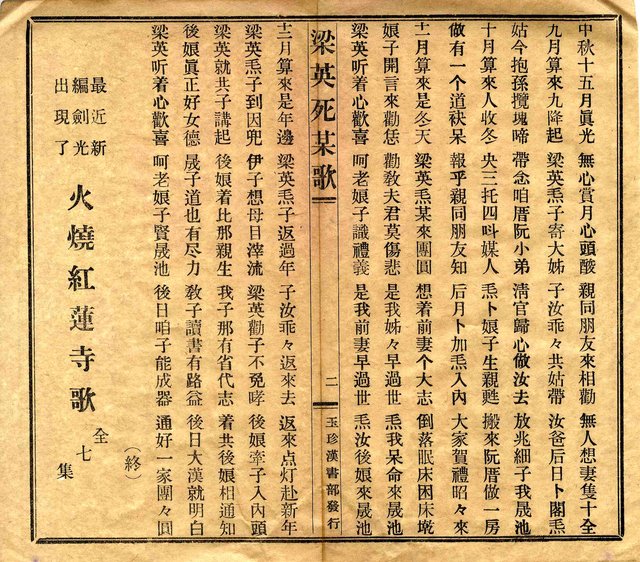 中秋十五月眞光　無心賞月心頭酸　親同朋友來相勸　無人想妻隻十全
九月算來九降起　梁英𤆬子寄大姊　子汝乖々共姑帶　汝爸后日卜閣𤆬
姑今抱孫攬塊啼　帶念咱厝阮小弟　淸官歸心做汝去　放兆細子我晟池
十月算來人收冬　央三托四呌媒人　𤆬卜娘子生親甦　搬來阮厝做一房
做有一个道袂呆　報乎親同朋友知　后月卜加𤆬入內　大家賀禮昭々來
十一月算來是冬天　梁英𤆬某來團圓　想着前妻个大志　倒落眠床困床墘
娘子開言來勸恁　勸敎夫君莫傷悲　是我姊々早過世　𤆬我呆命來晟池
梁英听着心歡喜　呵老娘子識禮義　是我前妻早過世　𤆬汝後娘來晟池
梁英死某歌
二
玉珍漢書部發行
十二月算來是年邊　梁英𤆬子返過年　子汝乖々返來去　返來点灯赴新年
梁英𤆬子到因兜　伊子想母目滓流　梁英勸子不免哮　後娘牽子入內頭
梁英就共子講起　後娘着比那親生　我子那有省代志　着共後娘相通知
後娘眞正好女德　晟子道也有尽力　敎子讀書有路益　後日大漢就明白
梁英听着心歡喜　呵老娘子賢晟池　後日咱子能成器　通好一家團々圓
（終）
最近新編劍光出現了
火燒紅蓮寺歌
全七集